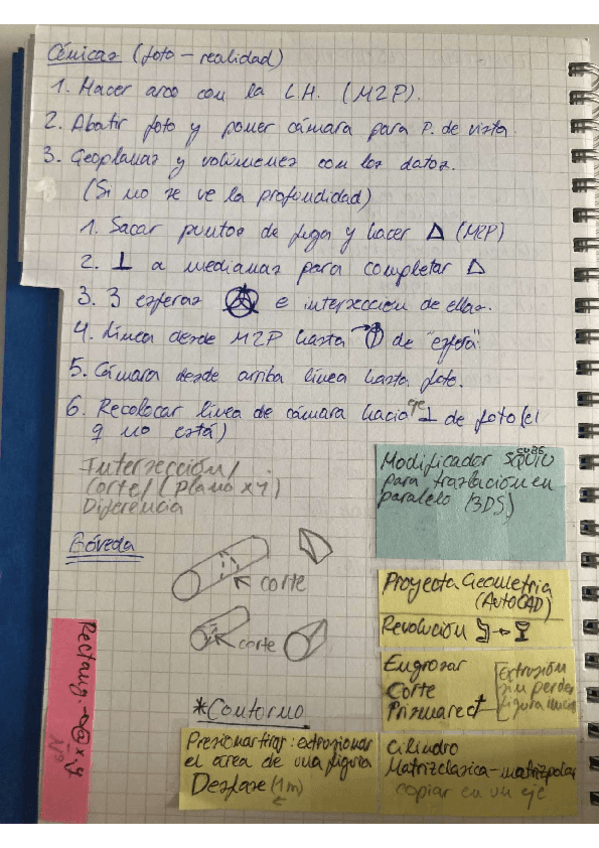 Cónicas (foto - realidad)
1. Hacer arco con la L.H. (M2P).
2. Abatir foto y poner cámara para P. de vista.
3. Geoplanas y volúmenes con los datos.
(Si no se ve la profundidad)
1. Sacar puntos de fuga y hacer △ (M2P)
2. ⊥ a medianas para completar △
3. 3 esferas e intersección de ellas.
4. Línea desde M2P hasta de "esfera".
5. Cámara desde arriba línea hasta foto.
6. Recolocar línea de cámara hacia eje ⊥ de foto (el
q no está)
Intersección/
Corte/(plano xy)
Diferencia
Bóveda
corte
corte
*Contorno
Rectang. → @x,y
Nº
Modificador
para traslación en
paralelo (3DS)
Proyecta Geometria
(AutoCAD)
Revolución
Engrosar
Corte
Extrusión
sin perder
figura
Presionartirar: extrusionar
el area de una figura
Desfase (1m)
Cilindro
Matrizclasica - matrizpolar
copiar en un eje